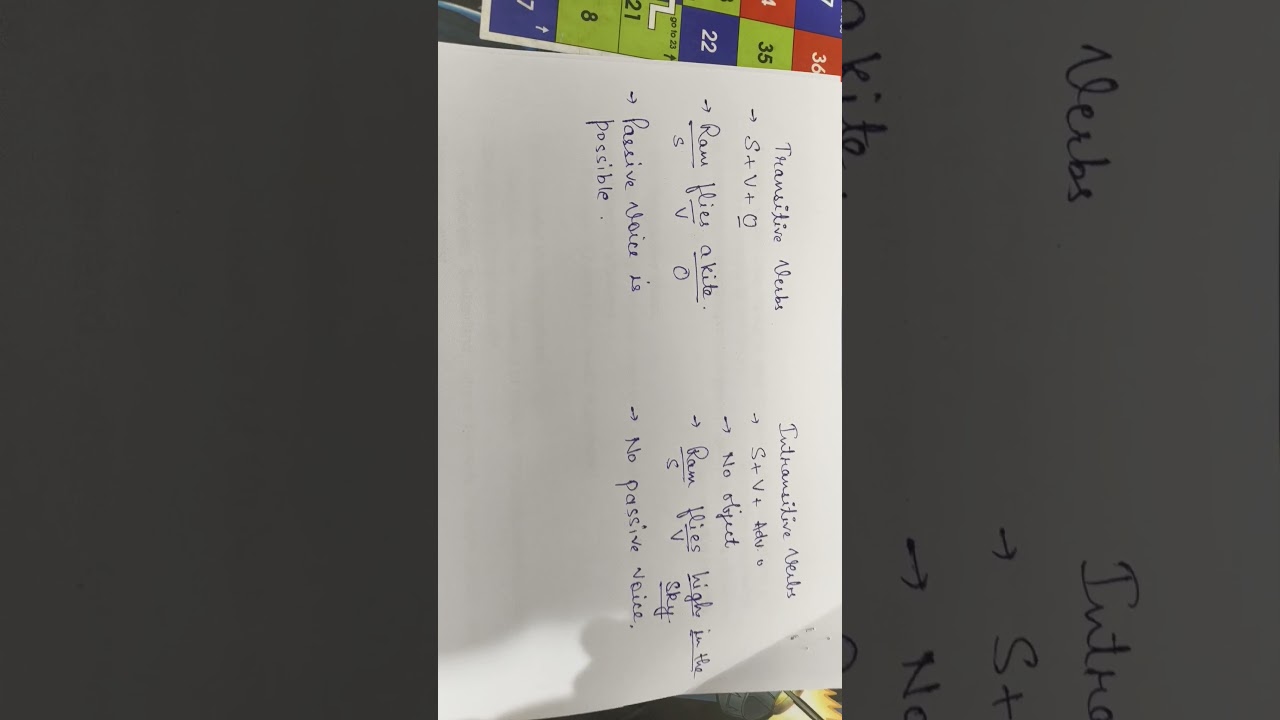 Transitive Verbs
→ S+V+O
→ Ram flies a kite.
S V O
→ Passive Voice is
possible.
Intransitive Verbs
→ S+V+ Adv.
→ No object
→ Ram flies high in the
S V sky.
→ No passive voice.
36
35
22
21
go to 23
8
7
Verbs
a kite.
Intra
→ S+
→ No